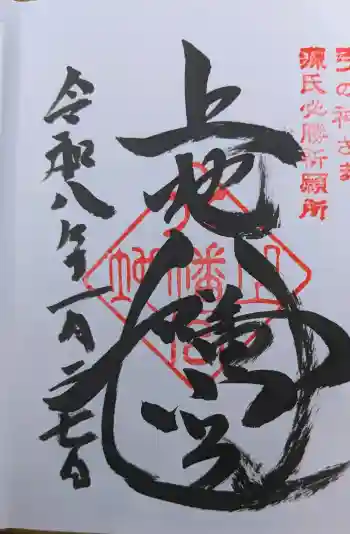 弓の神さま
源氏必勝祈願所
上地八幡宮
令和八年一月二七日